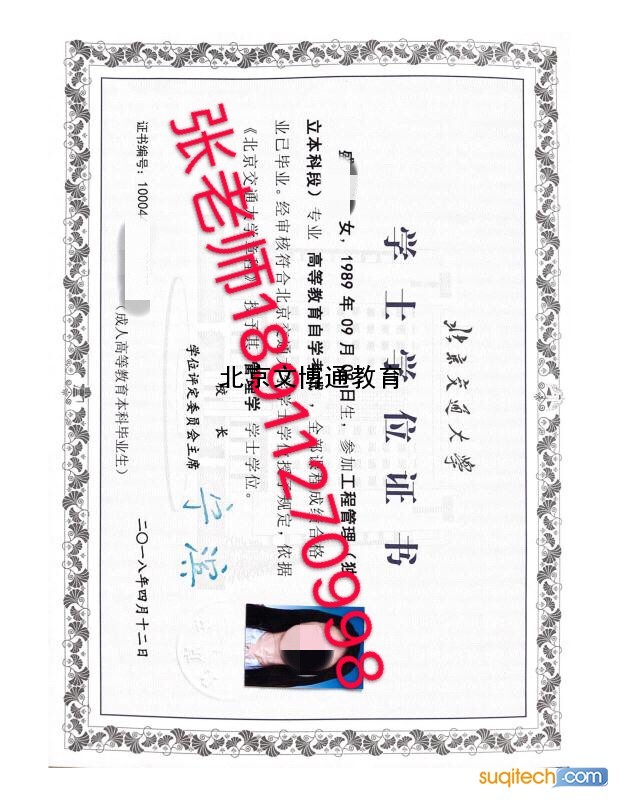 北京交通大学
学士学位证书
女，1989年09月 日生，参加工程管理（独
立本科段）专业 高等教育自学考 ，全部课程成绩合格，
业已毕业。经审核符合北京交通大 学士学位授予规定，依据
《北京交通大学章程》授予其 管理学 学士学位。
校 长
学位评定委员会主席
宁滨
证书编号：10004
（成人高等教育本科毕业生）
二〇一八年四月十二日
张老师18911270998
北京文博通教育
suqitech.com